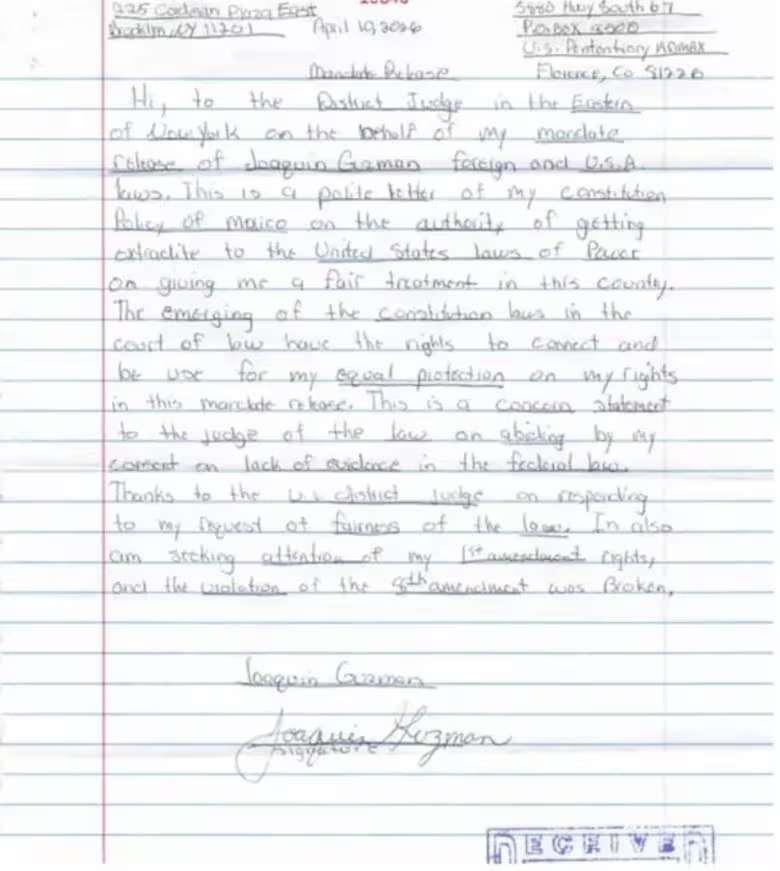 225 Cadman Plaza East
Brooklyn, NY 11201
April 19, 2026
5880 Hwy South 67
P.O. Box 8500
U.S. Pententiary ADMAX
Florence, Co 81226
Mandate Release
Hi, to the District Judge in the Eastern
of New York on the behalf of my mandate
release of Joaquin Guzman foreign and U.S.A.
laws. This is a polite letter of my constitution
Policy of mexico on the authority of getting
extradite to the United States laws of Power
on giving me a fair treatment in this country.
The emerging of the constitution laws in the
court of law have the rights to connect and
be use for my equal protection on my rights
in this mandate release. This is a concern statement
to the judge of the law on abiding by my
consent on lack of evidence in the federal law.
Thanks to the U.S. district judge on responding
to my request of fairness of the law. In also
am seeking attention of my 1st amendment rights,
and the violation of the 8th amendment was Broken.
Joaquin Guzman
Joaquin Guzman
Signature
RECEIVED